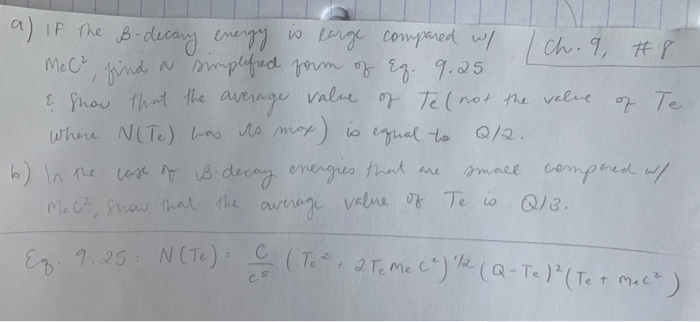 a) IF The β-decay energy is large compared w/
Ch. 9, #8
MeC², find a simplified form of Eq. 9.25
& Show that the average value of Te (not the value of Te
where N(Te) has its max) is equal to Q/2.
b) In the case of β-decay energies that are small compared w/
MeC², show that the average value of Te is Q/3.
Eq. 9.25: N(Te) = C/c⁵ (Te² + 2TeMeC²)^1/2 (Q-Te)² (Te + mec²)